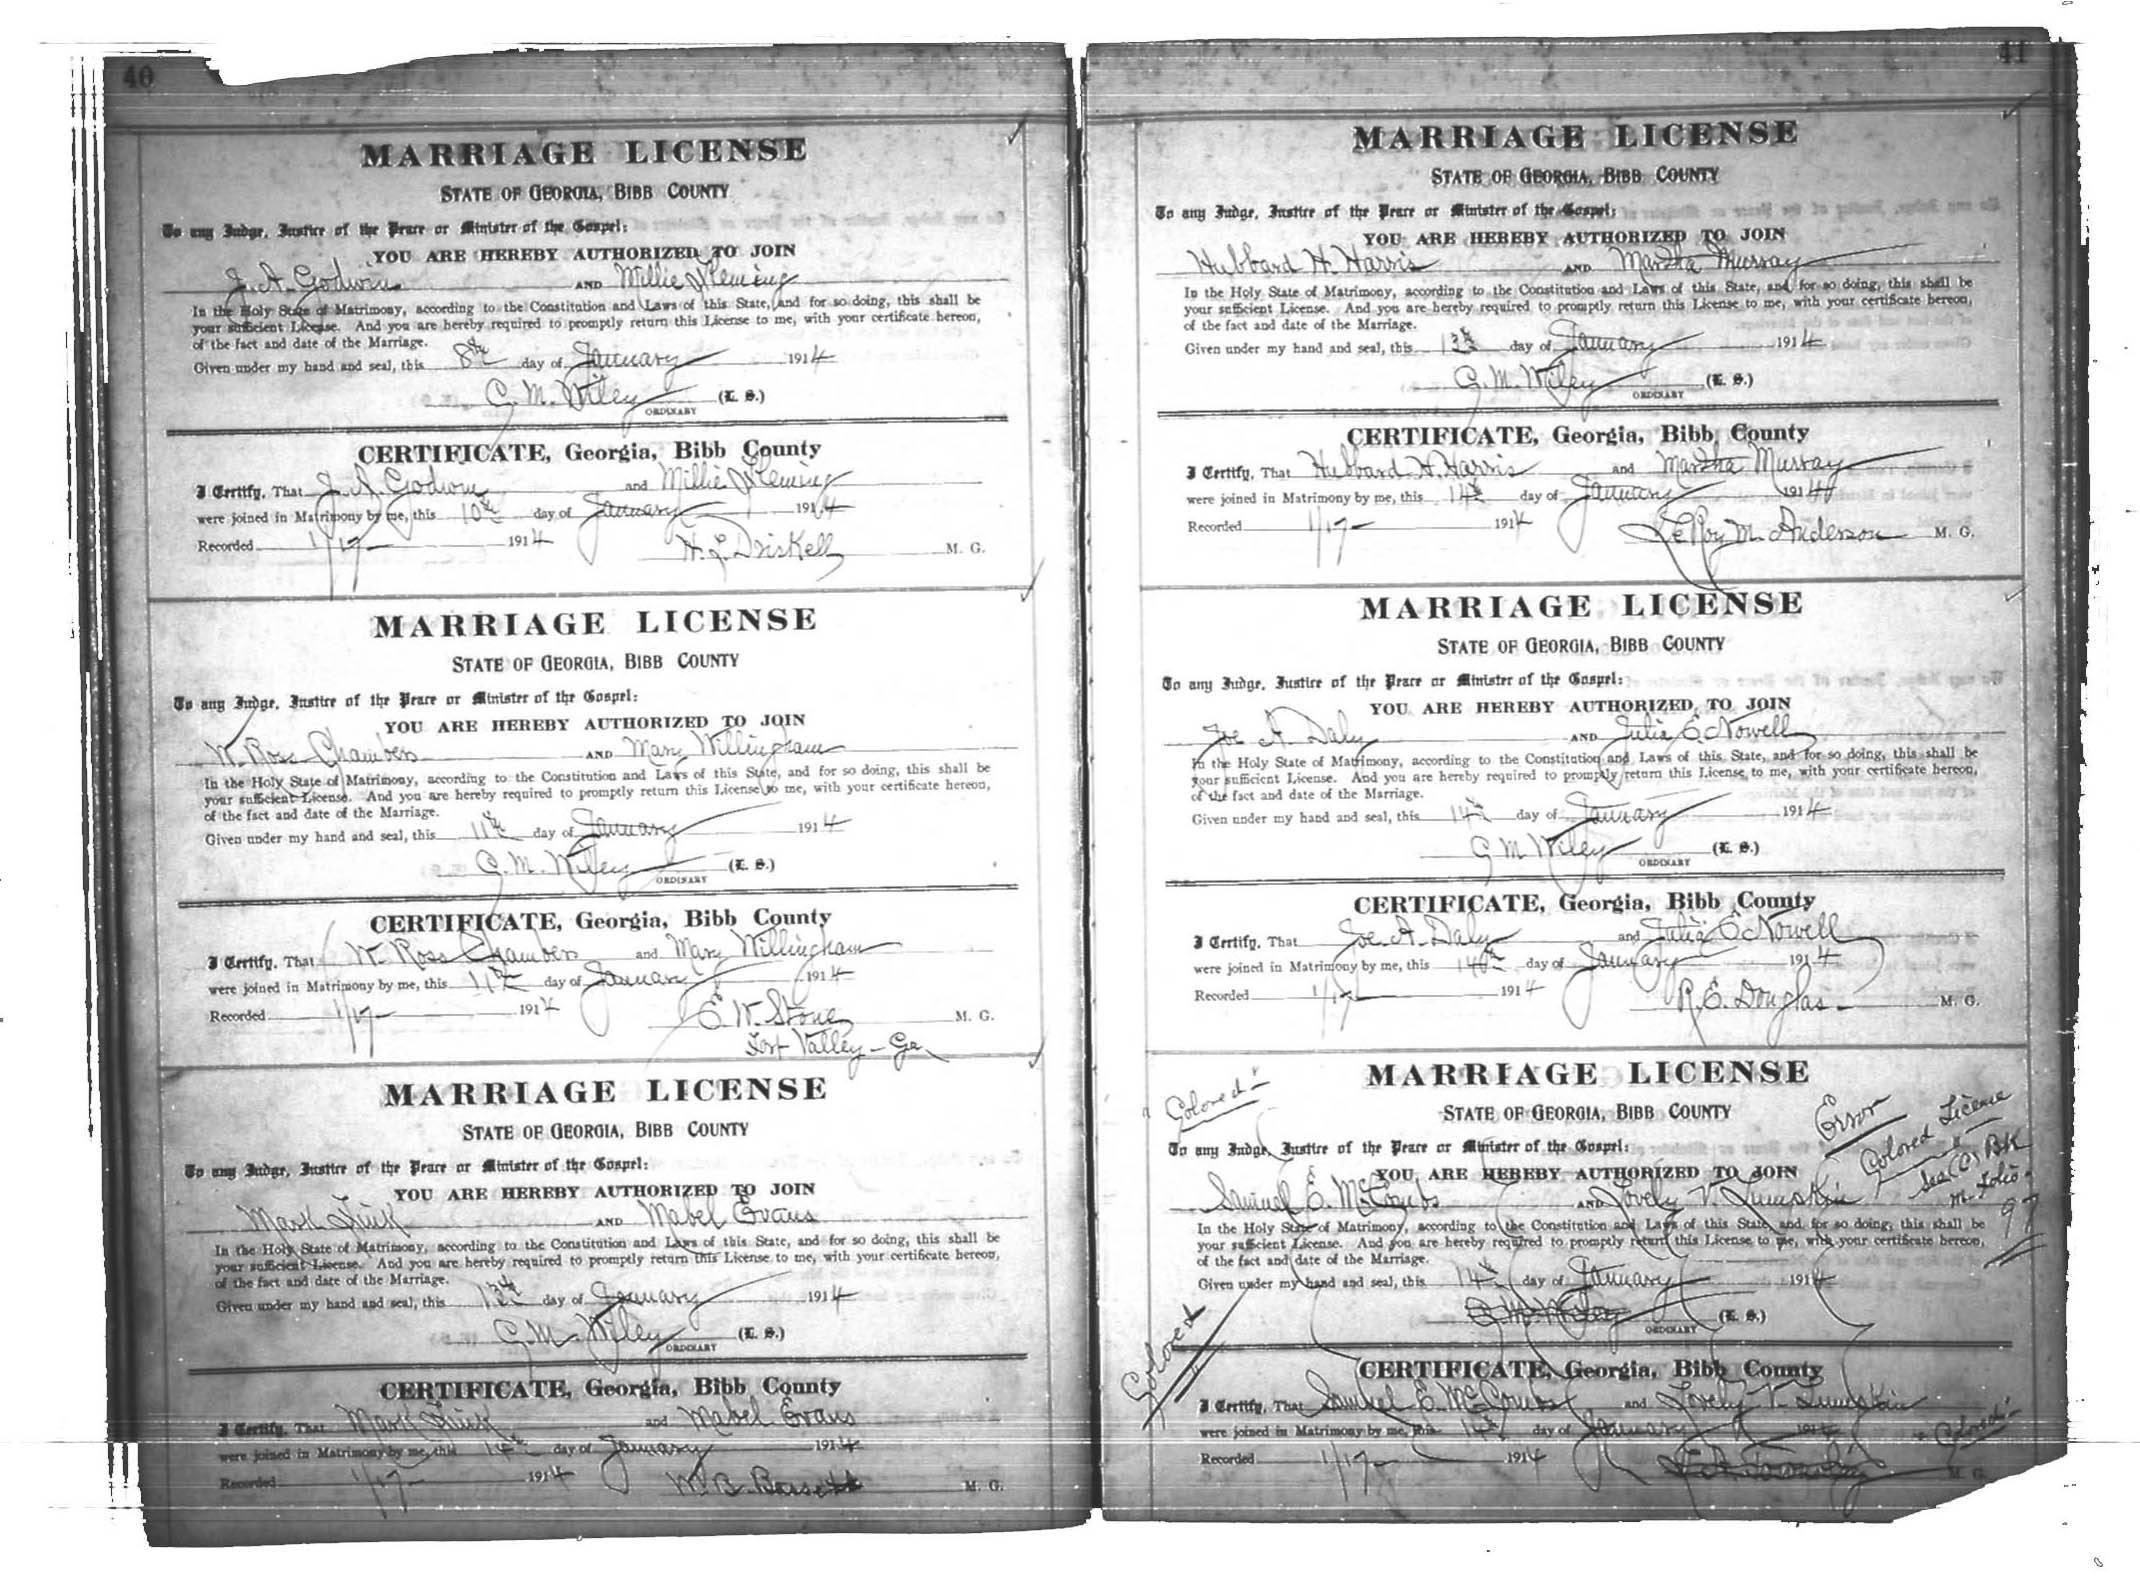 40
MARRIAGE LICENSE
STATE OF GEORGIA, BIBB COUNTY
To any Judge, Justice of the Peace or Minister of the Gospel:
YOU ARE HEREBY AUTHORIZED TO JOIN
J. A. Godwin AND Millie Fleming
In the Holy State of Matrimony, according to the Constitution and Laws of this State, and for so doing, this shall be
your sufficient License. And you are hereby required to promptly return this License to me, with your certificate hereon,
of the fact and date of the Marriage.
Given under my hand and seal, this 8th day of January 1914
C. M. Wiley (L. S.)
ORDINARY
CERTIFICATE, Georgia, Bibb County
I Certify, That J. A. Godwin and Millie Fleming
were joined in Matrimony by me, this 10th day of January 1914
Recorded 1/17 1914
H. L. Driskell M. G.
MARRIAGE LICENSE
STATE OF GEORGIA, BIBB COUNTY
To any Judge, Justice of the Peace or Minister of the Gospel:
YOU ARE HEREBY AUTHORIZED TO JOIN
W. Ross Chambers AND Mary Willingham
In the Holy State of Matrimony, according to the Constitution and Laws of this State, and for so doing, this shall be
your sufficient License. And you are hereby required to promptly return this License to me, with your certificate hereon,
of the fact and date of the Marriage.
Given under my hand and seal, this 11th day of January 1914
C. M. Wiley (L. S.)
ORDINARY
CERTIFICATE, Georgia, Bibb County
I Certify, That W. Ross Chambers and Mary Willingham
were joined in Matrimony by me, this 11th day of January 1914
Recorded 1/17 1914
E. W. Stone M. G.
Fort Valley - Ga
MARRIAGE LICENSE
STATE OF GEORGIA, BIBB COUNTY
To any Judge, Justice of the Peace or Minister of the Gospel:
YOU ARE HEREBY AUTHORIZED TO JOIN
Mark AND Mabel Evans
In the Holy State of Matrimony, according to the Constitution and Laws of this State, and for so doing, this shall be
your sufficient License. And you are hereby required to promptly return this License to me, with your certificate hereon,
of the fact and date of the Marriage.
Given under my hand and seal, this 13th day of January 1914
C. M. Wiley (L. S.)
ORDINARY
CERTIFICATE, Georgia, Bibb County
I Certify, That Mark and Mabel Evans
were joined in Matrimony by me, this 14th day of January 1914
Recorded 1/17 1914
M. G.
41
MARRIAGE LICENSE
STATE OF GEORGIA, BIBB COUNTY
To any Judge, Justice of the Peace or Minister of the Gospel:
YOU ARE HEREBY AUTHORIZED TO JOIN
Hubbard H. Harris AND Martha Murray
In the Holy State of Matrimony, according to the Constitution and Laws of this State, and for so doing, this shall be
your sufficient License. And you are hereby required to promptly return this License to me, with your certificate hereon,
of the fact and date of the Marriage.
Given under my hand and seal, this 13th day of January 1914
C. M. Wiley (L. S.)
ORDINARY
CERTIFICATE, Georgia, Bibb County
I Certify, That Hubbard H. Harris and Martha Murray
were joined in Matrimony by me, this 14th day of January 1914
Recorded 1/17 1914
LeRoy M. Anderson M. G.
MARRIAGE LICENSE
STATE OF GEORGIA, BIBB COUNTY
To any Judge, Justice of the Peace or Minister of the Gospel:
YOU ARE HEREBY AUTHORIZED TO JOIN
Joe A. Daly AND Julia E. Nowell
In the Holy State of Matrimony, according to the Constitution and Laws of this State, and for so doing, this shall be
your sufficient License. And you are hereby required to promptly return this License to me, with your certificate hereon,
of the fact and date of the Marriage.
Given under my hand and seal, this 14th day of January 1914
C. M. Wiley (L. S.)
ORDINARY
CERTIFICATE, Georgia, Bibb County
I Certify, That Joe. A. Daly and Julia E. Nowell
were joined in Matrimony by me, this 14th day of January 1914
Recorded 1/17 1914
R. E. Douglas M. G.
Colored
MARRIAGE LICENSE
STATE OF GEORGIA, BIBB COUNTY
Error
Colored License
See (C) BK
M. Folio
97
To any Judge, Justice of the Peace or Minister of the Gospel:
YOU ARE HEREBY AUTHORIZED TO JOIN
Samuel E. McCombs AND Lovely V. Lumpkin
In the Holy State of Matrimony, according to the Constitution and Laws of this State, and for so doing, this shall be
your sufficient License. And you are hereby required to promptly return this License to me, with your certificate hereon,
of the fact and date of the Marriage.
Given under my hand and seal, this 14th day of January 1914
C. M. Wiley (L. S.)
ORDINARY
Colored
CERTIFICATE, Georgia, Bibb County
I Certify, That Samuel E. McCombs and Lovely V. Lumpkin
were joined in Matrimony by me, this 14th day of January 1914
Colored
Recorded 1/17 1914
M. G.